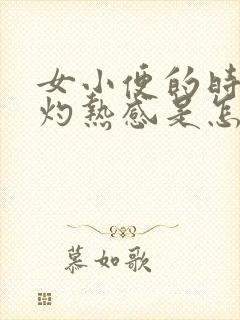 女小便的时
灼热感是怎
慕如歌